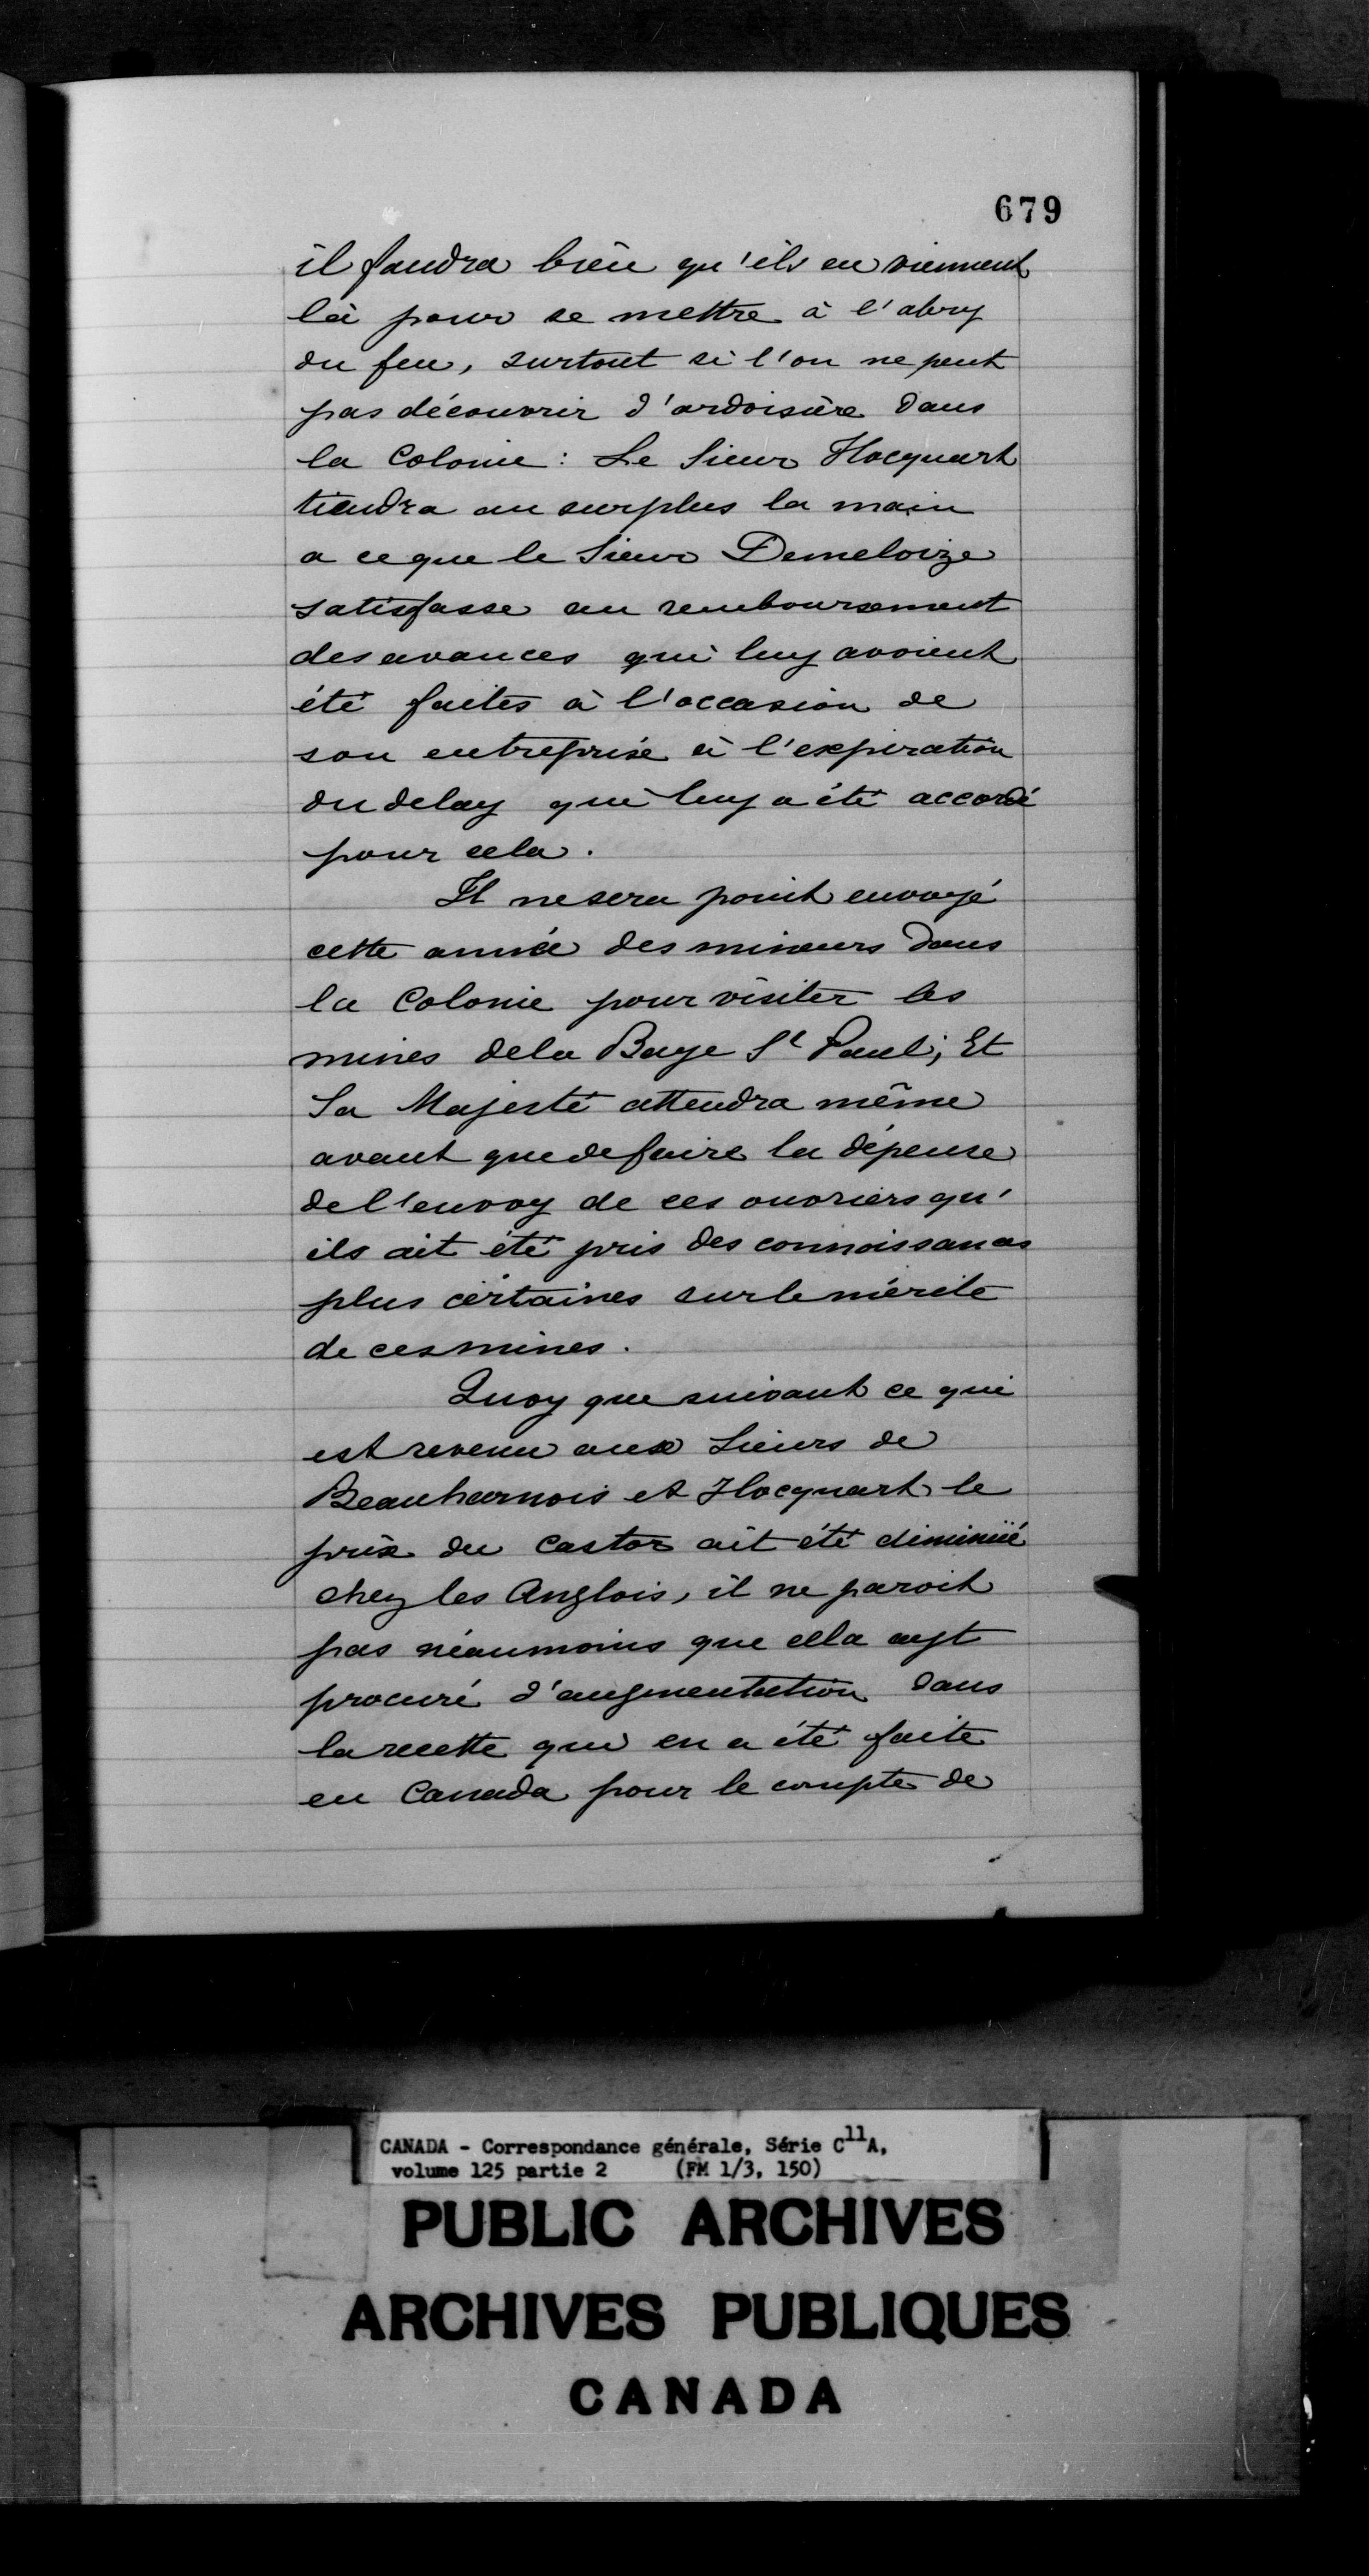 679
il faudra bien qu'ils en viennent
là pour se mettre à l'abry
du feu, surtout si l'on ne peut
pas découvrir d'ardoisière dans
la Colonie : Le Sieur Hocquart
tiendra au surplus la main
a ce que le Sieur Demeloize
satisfasse au remboursement
des avances qui luy avoient
été faites à l'occasion de
son entreprise à l'expiration
du delay qui luy a été accordé
pour cela.
Il ne sera point envoyé
cette année des mineurs dans
la Colonie pour visiter les
mines de la Baye St Paul; Et
Sa Majesté attendra même
avant que de faire la dépense
de l'envoy de ces ouvriers qu'
ils ait été pris des connoissances
plus certaines sur le mérite
de ces mines.
Quoy que suivant ce qui
est revenu aux Sieurs de
Beauharnois et Hocquart le
prix du Castor ait été diminüé
chez les Anglois, il ne paroit
pas néaumoins que cela ayt
procuré d'augmentation dans
la recette qui en a été faite
en Canada pour le compte de
CANADA - Correspondance générale, Série C11A,
volume 125 partie 2 (FM 1/3, 150)
PUBLIC ARCHIVES
ARCHIVES PUBLIQUES
CANADA